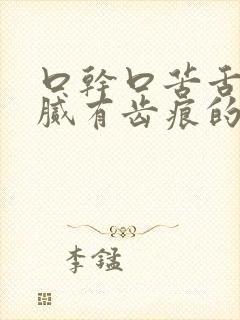 口幹口苦舌
腻有齿痕的
李锰